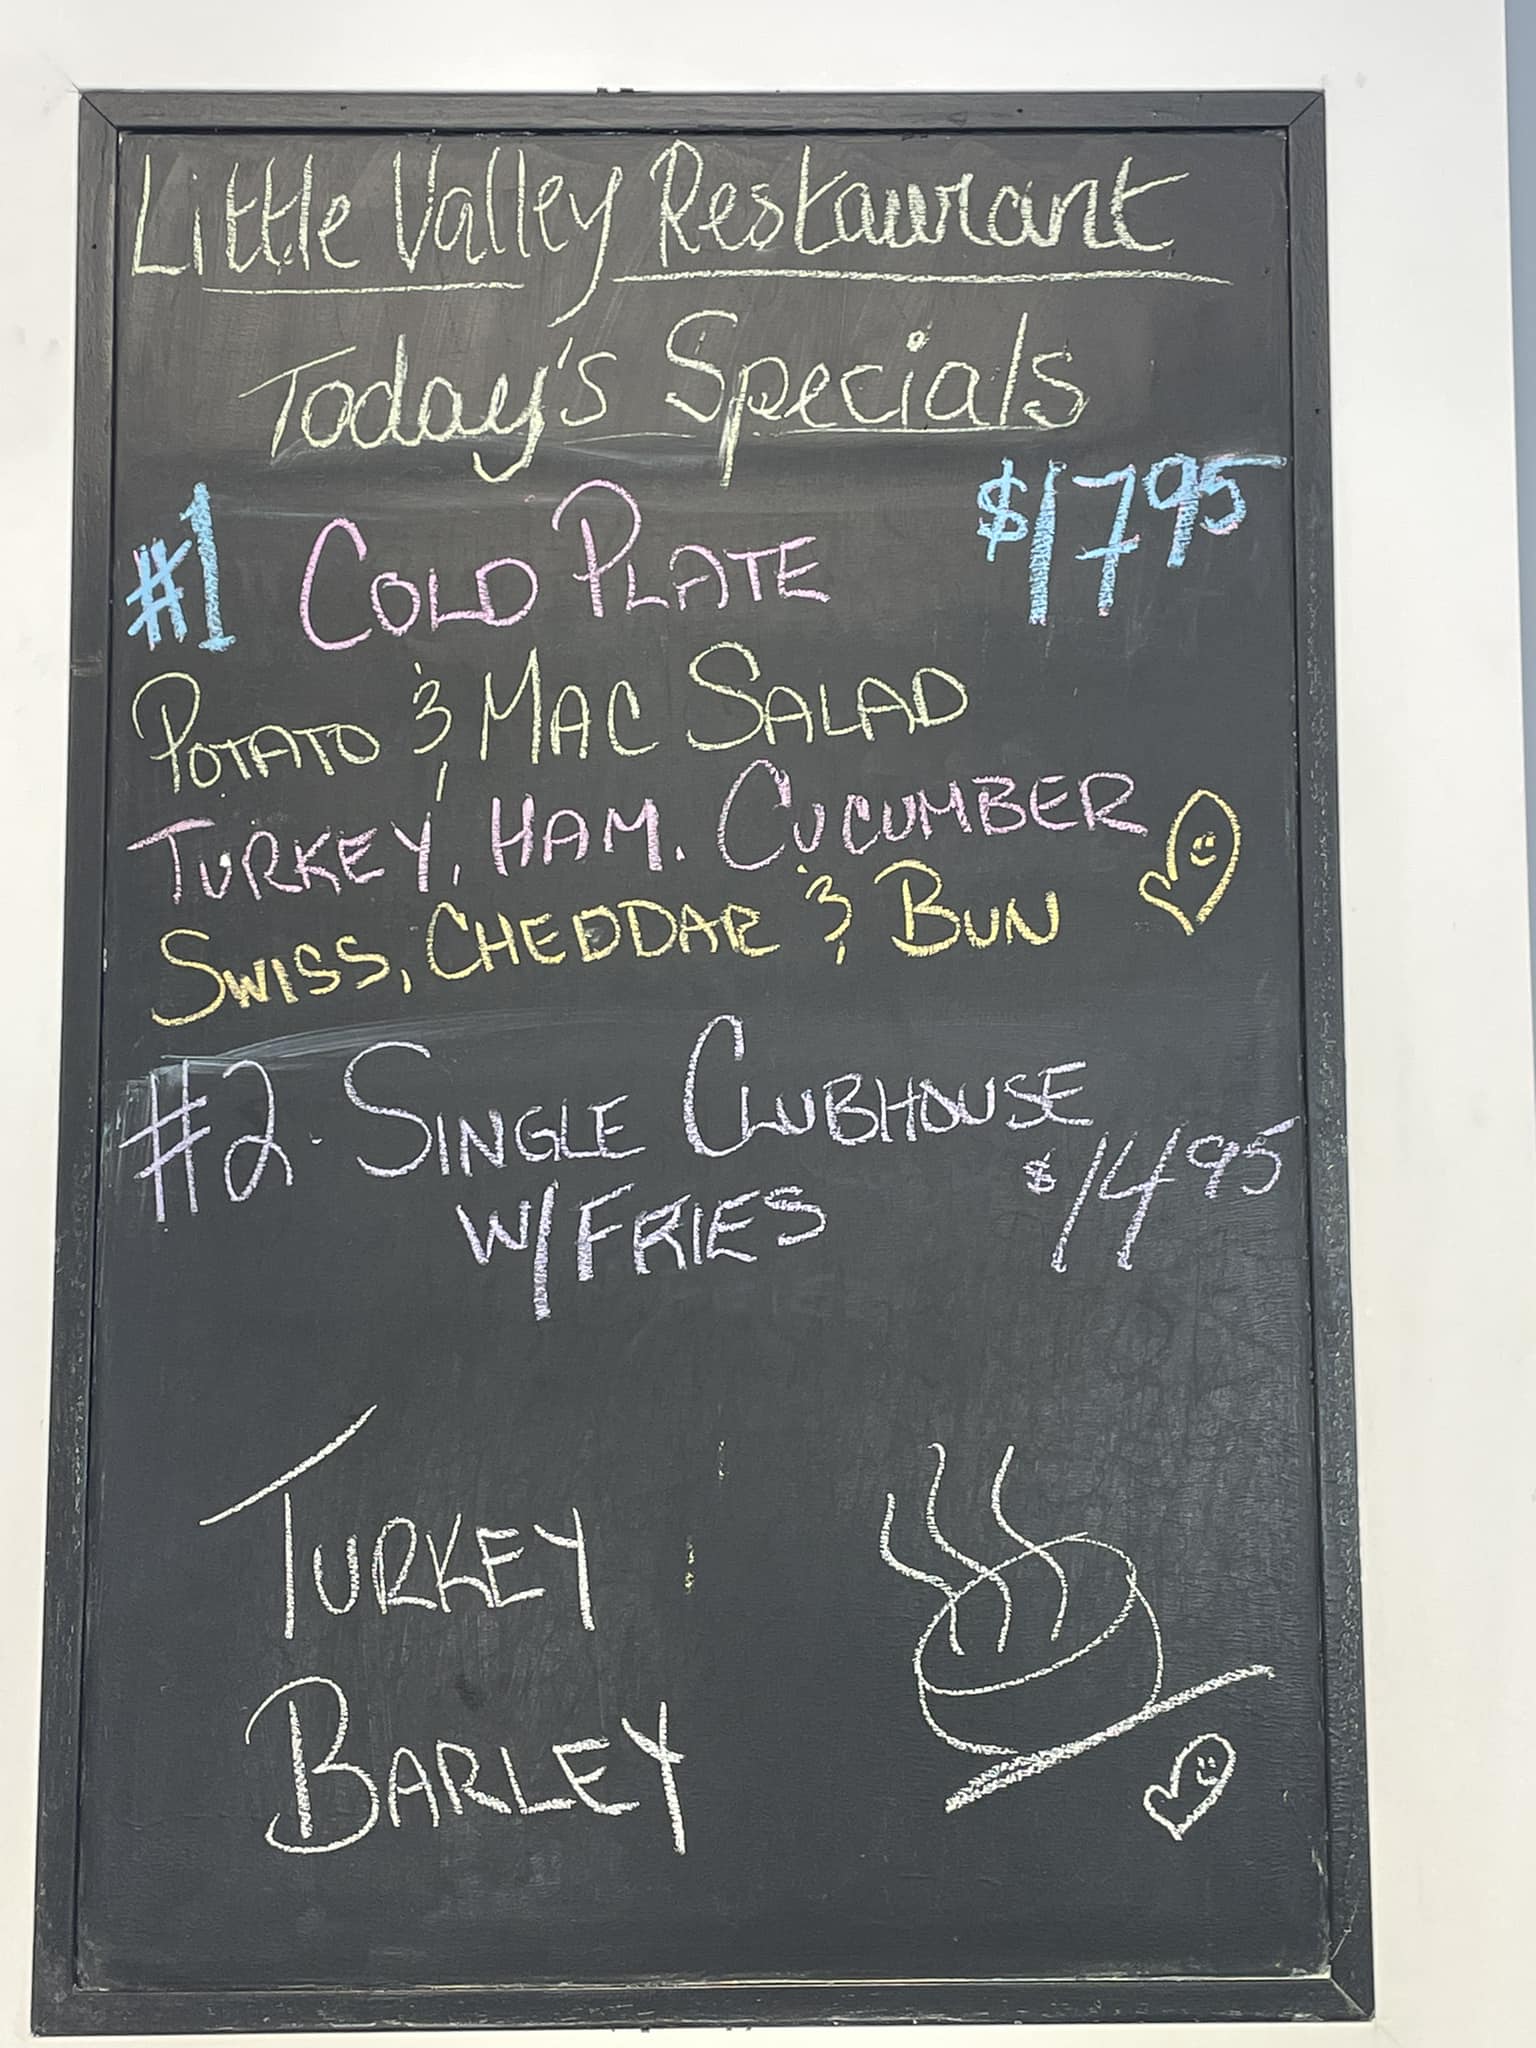 Little Valley Restaurant
Today's Specials
#1 COLD PLATE $17.95
POTATO & MAC SALAD
TURKEY, HAM. CUCUMBER
SWISS, CHEDDAR & BUN
#2. SINGLE CLUBHOUSE
W/FRIES $14.95
TURKEY
BARLEY